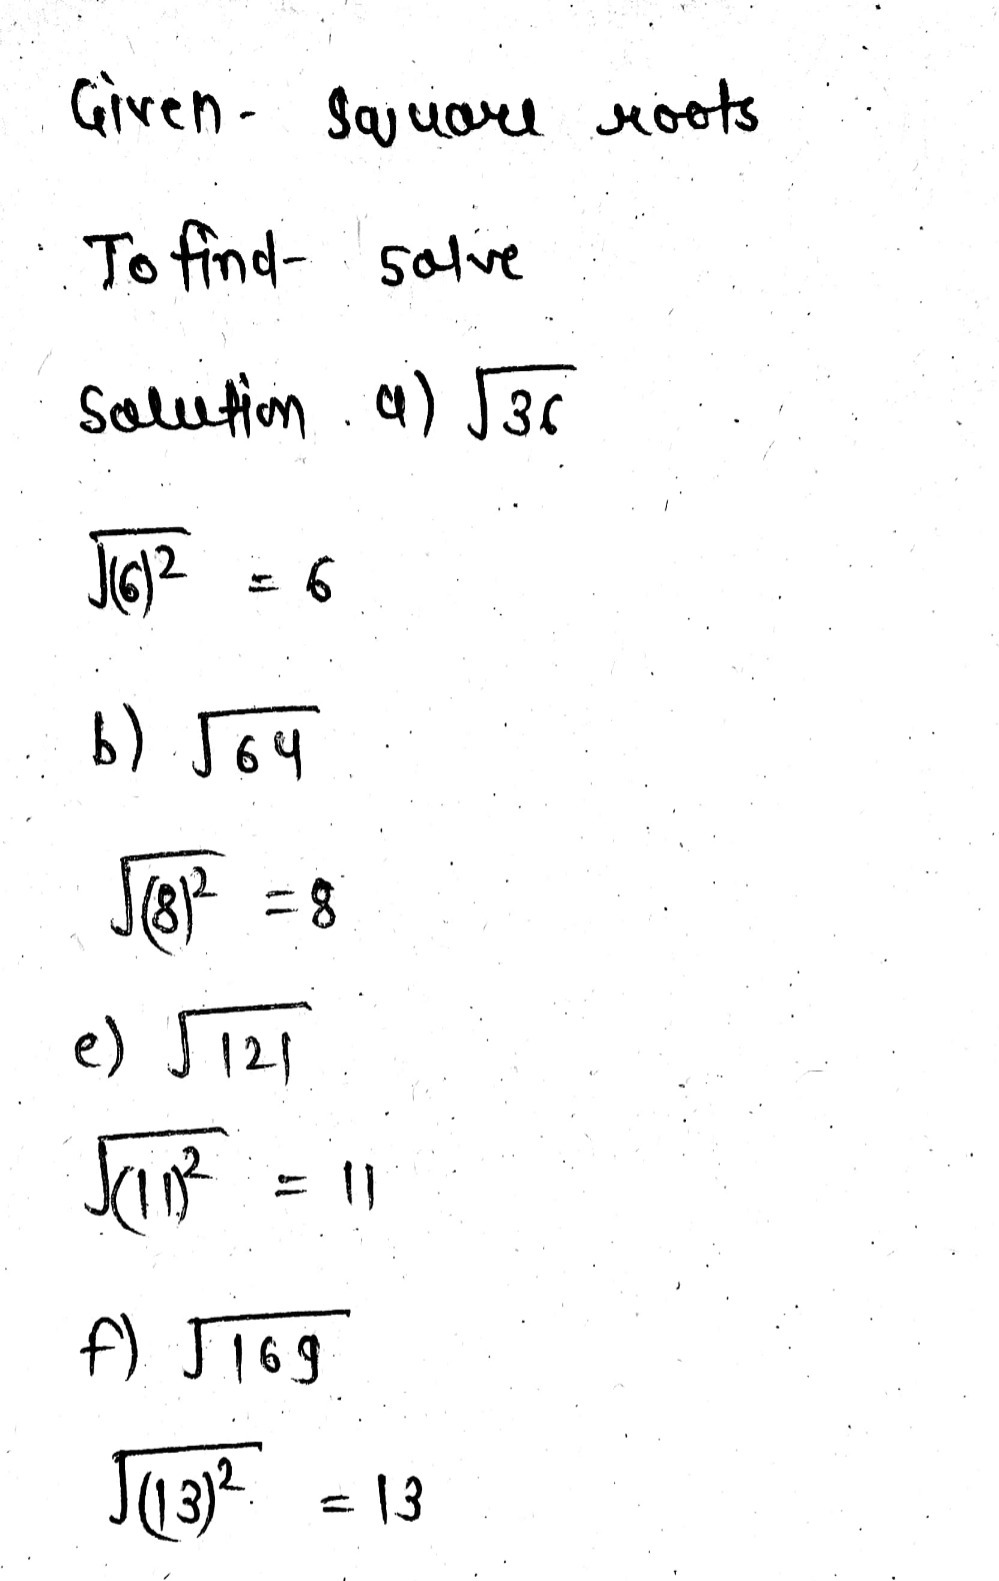 Given - Square roots
To find - solve
Solution. a) √36
√(6)² = 6
b) √64
√(8)² = 8
e) √121
√(11)² = 11
f) √169
√(13)² = 13